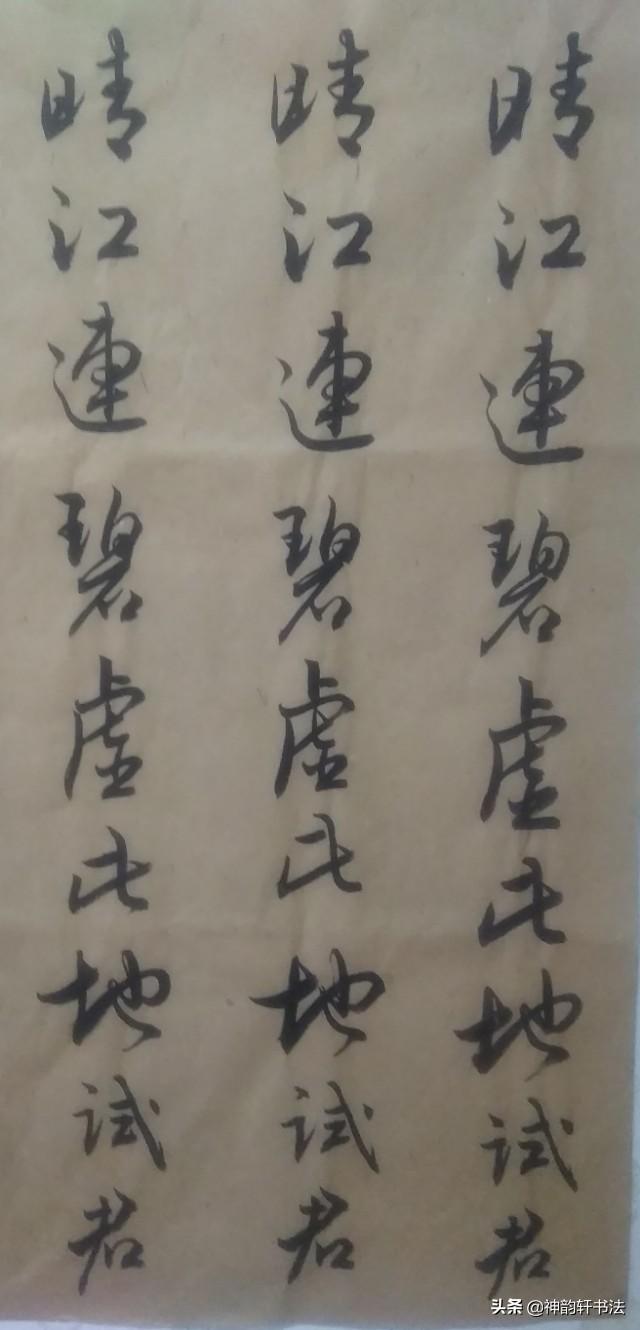 晴江連碧虛此地試君
晴江連碧虛此地試君
晴江連碧虛此地試君
头条 @神韵轩书法